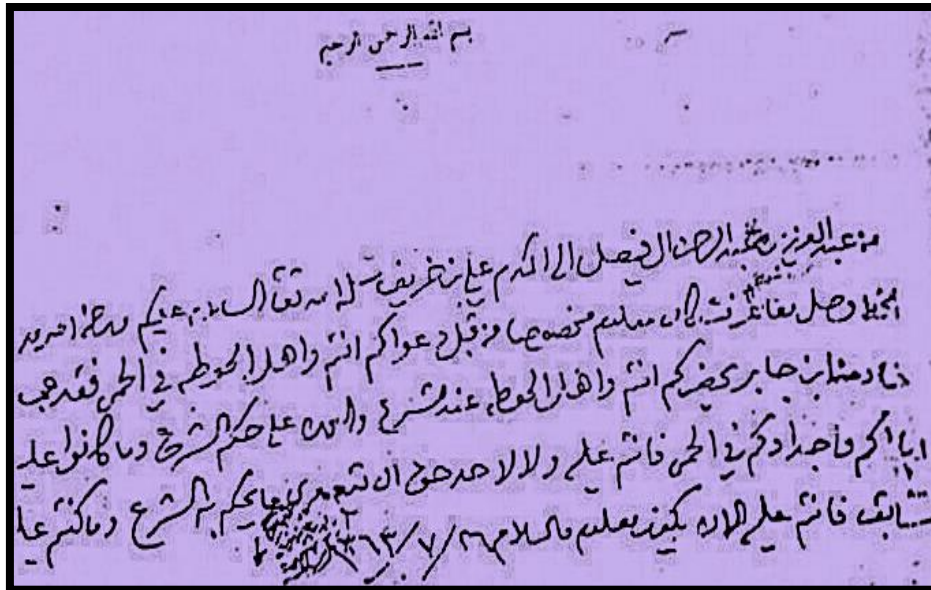 بسم الله الرحمن الرحيم
من عبد العزيز بن عبد الرحمن ال فيصل الى المكرم علي بن خريف سلمه الله تعالى السلام عليكم ورحمة الله وبركاته
الخط وصل وما عرفت كان معلوم مخصوصا من قبل دعواكم انتم واهل الحوطه في الحمى فقد
ابن جابر يحضركم انتم واهل الحوطه عند الشرع على حكم الشرع وما كانوا عليه
اباكم واجدادكم في الحمى فانتم عليه ولا لاحد حق ان يتعدى ما يحكم به الشرع وما كنتم عليه
سابق فانتم عليه يكون معلوم والسلام ٢٦/٧/١٣٦٣